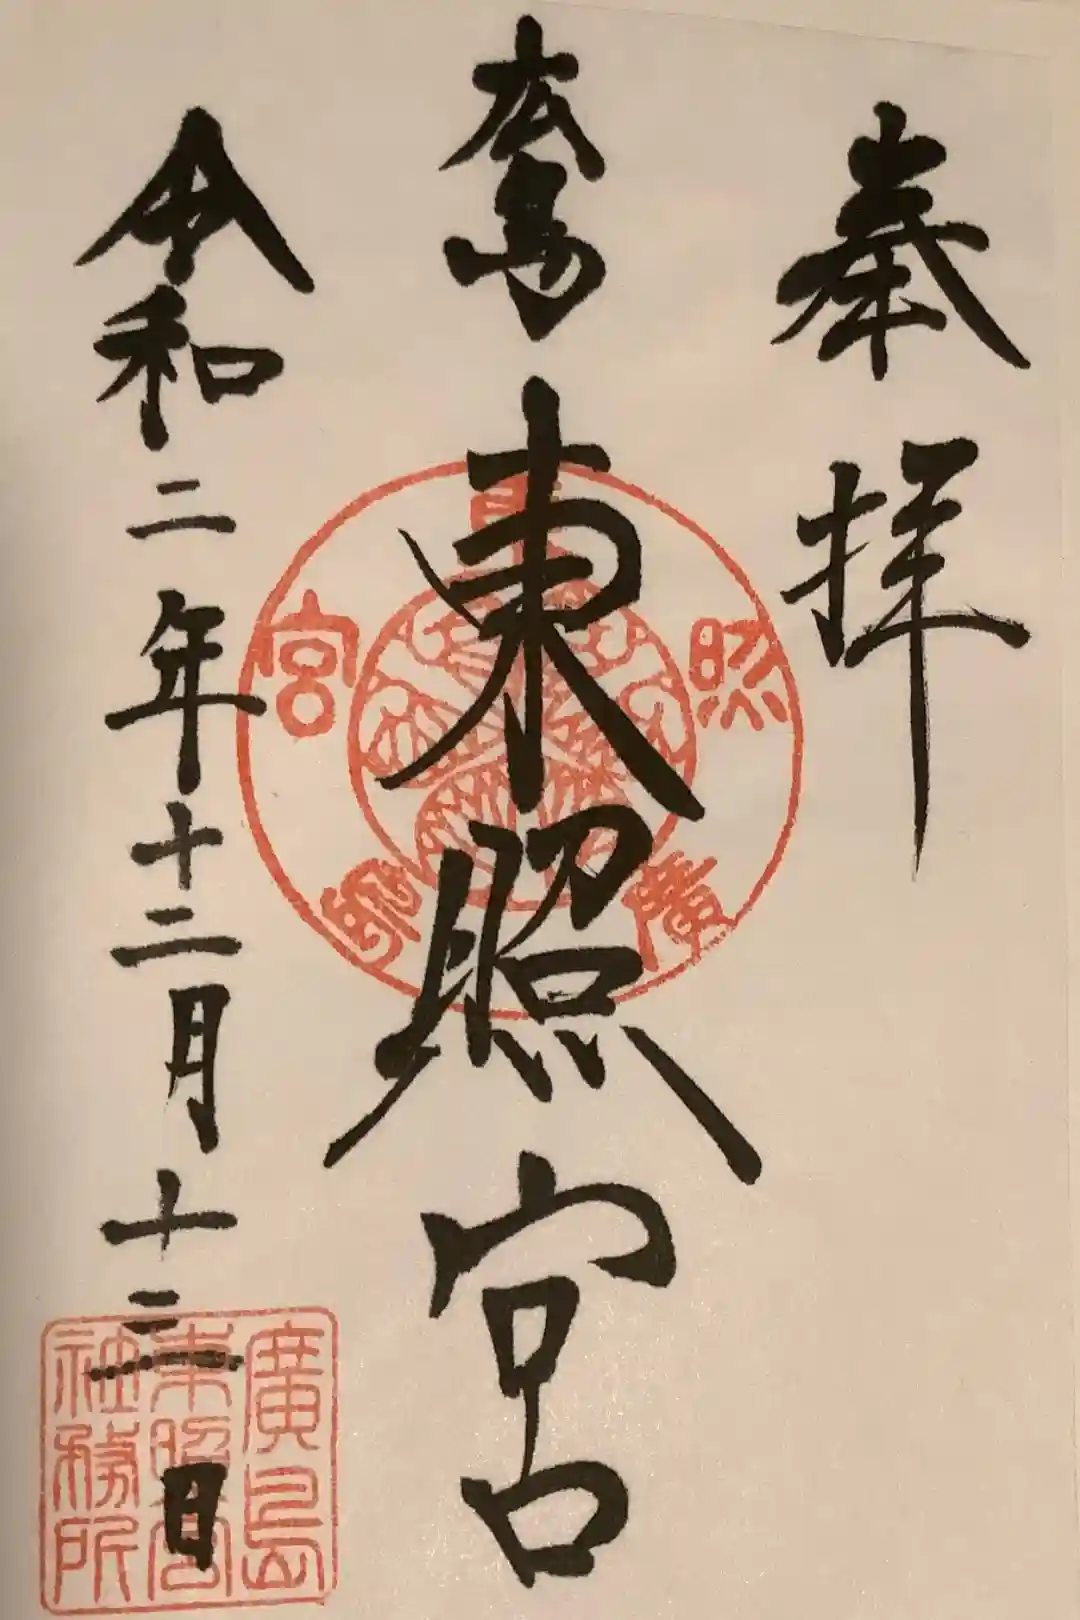 奉拝
広島東照宮
令和二年十二月十三日
廣島東照宮
廣島
東照宮
社務所